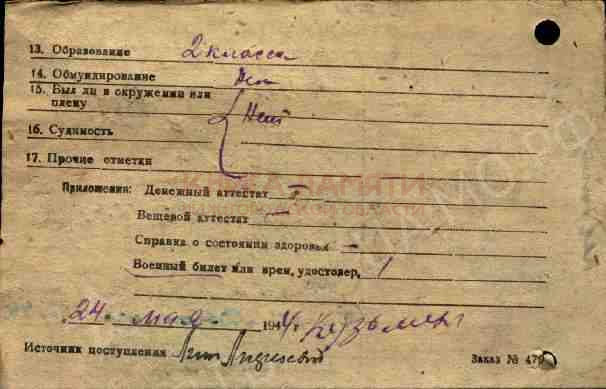 13. Образование 2 класса
14. Обмундирование
15. Был ли в окружении или
плену Нет
16. Судимость
17. Прочие отметки
КНИГА ПАМЯТИ
Приложения: Денежный аттестат —
Вещевой аттестат —
Справка о состоянии здоровья —
Военный билет или врем. удостовер. 1
24 мая 1944 г
Источник поступления
Заказ № 479